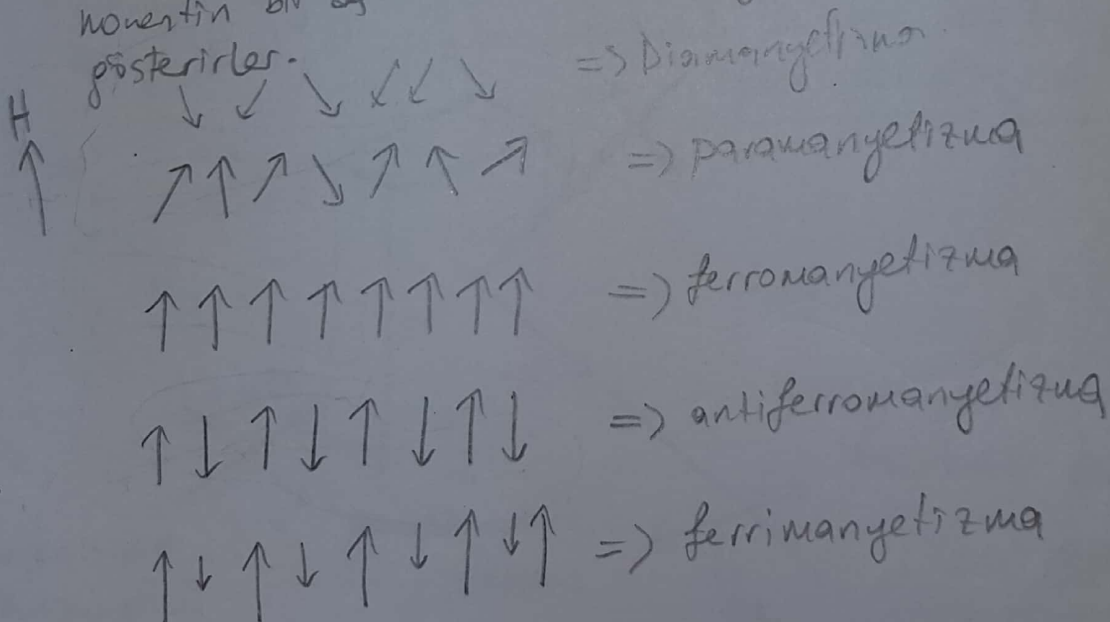 momentin bir
gösterirler.
=> Diamanyetizma
H
=> paramanyetizma
=> ferromanyetizma
=> antiferromanyetizma
=> ferrimanyetizma